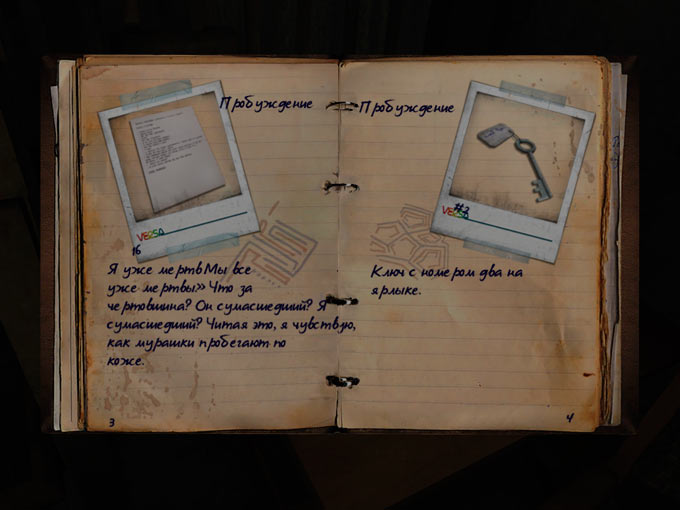 Пробуждение
VERSA
16
Я уже мертв Мы все
уже мертвы» Что за
чертовщина? Он сумасшедший? Я
сумасшедший? Читая это, я чувствую,
как мурашки пробегают по
коже.
3
Пробуждение
#2
VERSA
Ключ с номером два на
ярлыке.
4